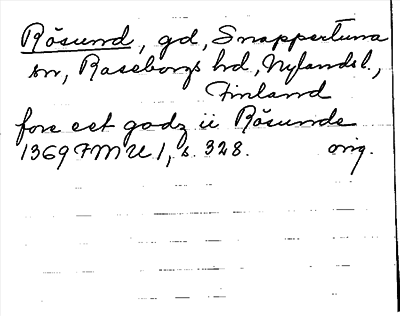 Rösund, gd, Snappertuna
sn, Raseborgs hd, Nylands l.,
Finland
fore eet godz ii Rösunde
1369 FMU 1, s. 328. orig.